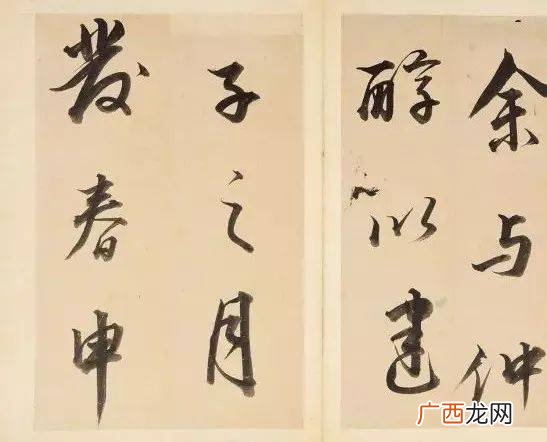 余与仲
醇以建
子之月
發春申
广西龙网